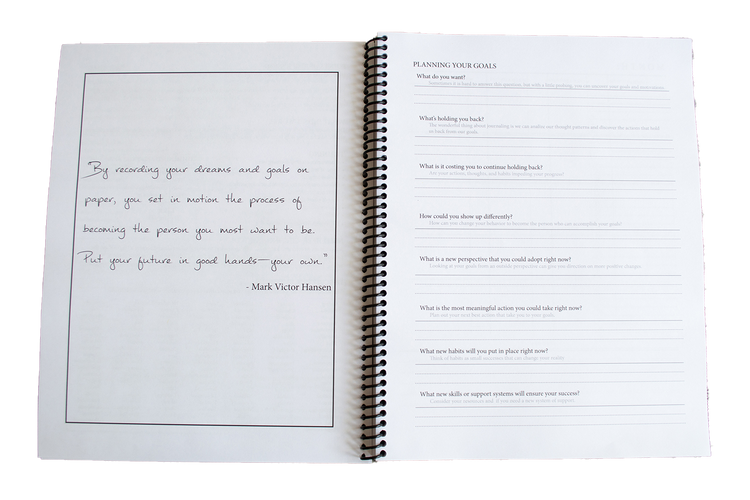 "By recording your dreams and goals on
paper, you set in motion the process of
becoming the person you most want to be.
Put your future in good hands—your own."
- Mark Victor Hansen
PLANNING YOUR GOALS
What do you want?
Sometimes it is hard to answer this question, but with a little pushing, you can uncover your goals
What's holding you back?
The wonderful thing about journaling is we can analyze our thought patterns and become the
or back from our goals.
What is it costing you to continue holding back?
Are your actions, thoughts, and habits impeding your progress?
How could you show up differently?
How can you change your behavior to become the person who can accomplish your goals?
What is a new perspective that you could adopt right now?
Looking at your goals from an outside perspective can give you direction or
What is the most meaningful action you could take right now?
Plan out your next best action that take you to your goals.
What new habits will you put in place right now?
Think of habits as small successes that can change your
What new skills or support systems will ensure your success?
Consider your resources and, if you need a new system or support.